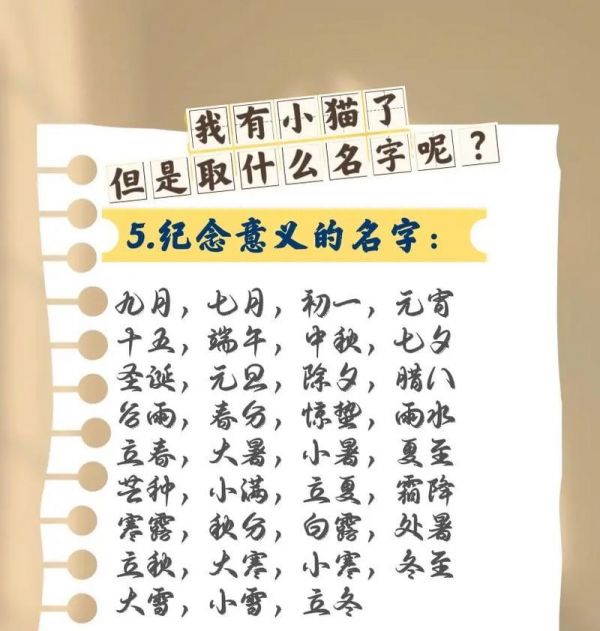 我有小猫了
但是取什么名字呢？
5.纪念意义的名字：
九月，七月，初一，元宵
十五，端午，中秋，七夕
圣诞，元旦，除夕，腊八
谷雨，春分，惊蛰，雨水
立春，大暑，小暑，夏至
芒种，小满，立夏，霜降
寒露，秋分，白露，处暑
立秋，大寒，小寒，冬至
大雪，小雪，立冬